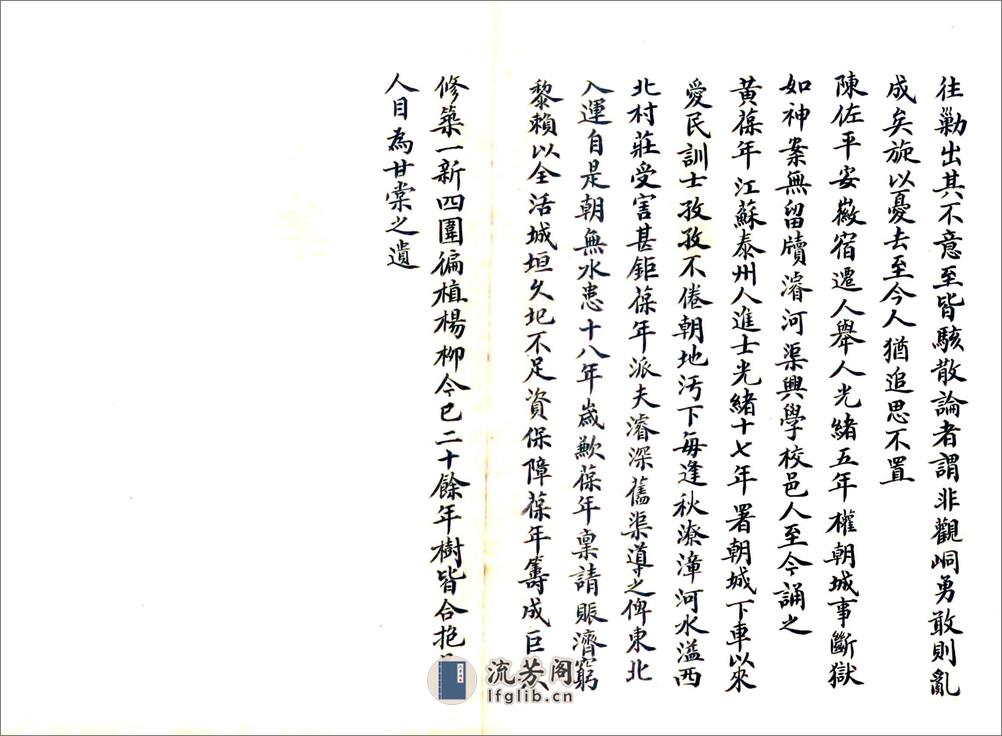 往勦出其不意至皆駭散論者謂非觀峒勇敢則亂
成矣旋以憂去至今人猶追思不置
陳佐平安徽宿遷人舉人光緒五年權朝城事斷獄
如神案無留牘濬河渠興學校邑人至今誦之
黃葆年江蘇泰州人進士光緒十七年署朝城下車以來
愛民訓士孜孜不倦朝地污下每逢秋潦漳河水溢西
北村莊受害甚鉅葆年派夫濬深舊渠導之俾東北
入運自是朝無水患十八年歲歉葆年稟請賑濟窮
黎賴以全活城垣久圮不足資保障葆年籌成巨
修築一新四圍徧植楊柳今已二十餘年樹皆合抱
人目為甘棠之遺
流芳阁
lfglib.cn